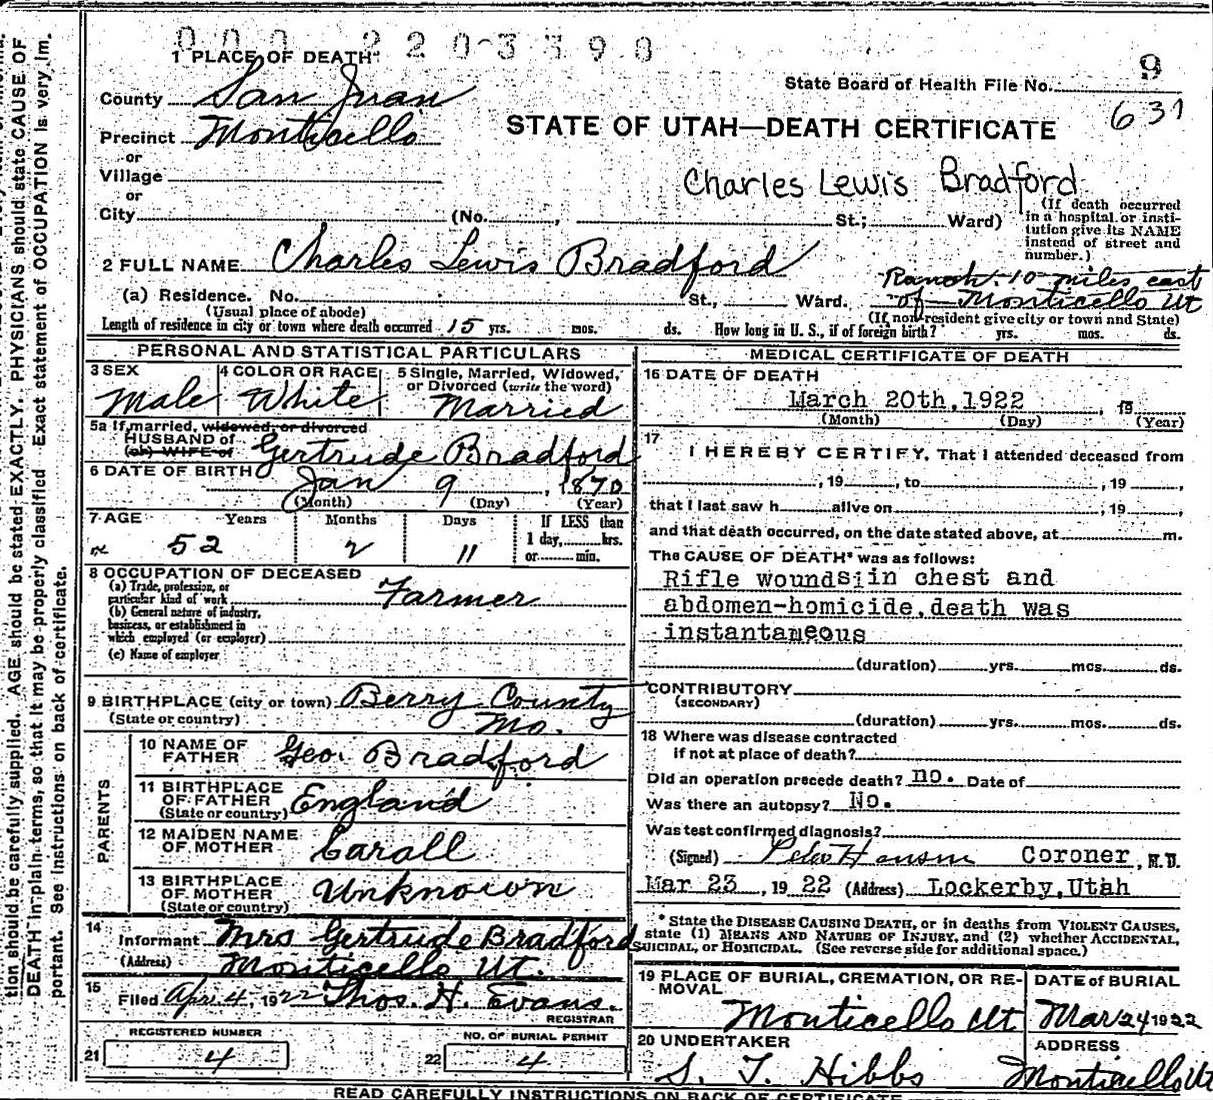 000 2203398
1 PLACE OF DEATH
State Board of Health File No. 9
County San Juan
631
Precinct Monticello
STATE OF UTAH—DEATH CERTIFICATE
or
Village
Charles Lewis Bradford
or
City (No. , St.; Ward)
(If death occurred in a hospital or insti-
tution give its NAME
instead of street and
number.)
2 FULL NAME Charles Lewis Bradford
Ranch. 10 miles east
(a) Residence. No. St., Ward. of Monticello Ut
(Usual place of abode)
(If non-resident give city or town and State)
Length of residence in city or town where death occurred 15 yrs. mos. ds. How long in U. S., if of foreign birth? yrs. mos. ds.
PERSONAL AND STATISTICAL PARTICULARS
3 SEX
Male
4 COLOR OR RACE
White
5 Single, Married, Widowed,
or Divorced (write the word)
Married
5a If married, widowed, or divorced
HUSBAND of
(or) WIFE of
Gertrude Bradford
6 DATE OF BIRTH
Jan 9, 1870
(Month) (Day) (Year)
7 AGE Years Months Days If LESS than
1 day, hrs.
or min.
52 2 11
8 OCCUPATION OF DECEASED
(a) Trade, profession, or
particular kind of work Farmer
(b) General nature of industry,
business, or establishment in
which employed (or employer)
(c) Name of employer
9 BIRTHPLACE (city or town) Berry County
(State or country) Mo.
PARENTS
10 NAME OF
FATHER Geo. Bradford
11 BIRTHPLACE
OF FATHER England
(State or country)
12 MAIDEN NAME
OF MOTHER Caroll
13 BIRTHPLACE
OF MOTHER Unknown
(State or country)
14
Informant Mrs Gertrude Bradford
(Address) Monticello Ut.
15
Filed Apr. 4, 1922 Thos. H. Evans.
REGISTRAR
REGISTERED NUMBER
21 4
NO. OF BURIAL PERMIT
22 4
MEDICAL CERTIFICATE OF DEATH
16 DATE OF DEATH
March 20th, 1922 , 19
(Month) (Day) (Year)
17
I HEREBY CERTIFY, That I attended deceased from
, 19 , to , 19 ,
that I last saw h alive on , 19 ,
and that death occurred, on the date stated above, at m.
The CAUSE OF DEATH* was as follows:
Rifle wounds in chest and
abdomen-homicide, death was
instantaneous
(duration) yrs. mos. ds.
CONTRIBUTORY
(SECONDARY)
(duration) yrs. mos. ds.
18 Where was disease contracted
if not at place of death?
Did an operation precede death? no. Date of
Was there an autopsy? No.
Was test confirmed diagnosis?
(Signed) Peter Hanson Coroner, M.D.
Mar 23, 1922 (Address) Lockerby, Utah
* State the DISEASE CAUSING DEATH, or in deaths from VIOLENT CAUSES,
state (1) MEANS AND NATURE OF INJURY, and (2) whether ACCIDENTAL,
SUICIDAL, or HOMICIDAL. (See reverse side for additional space.)
19 PLACE OF BURIAL, CREMATION, OR RE-
MOVAL
Monticello Ut
DATE of BURIAL
Mar 24 1922
20 UNDERTAKER
S. T. Hibbs
ADDRESS
Monticello Ut
READ CAREFULLY INSTRUCTIONS ON BACK OF CERTIFICATE
tion should be carefully supplied. AGE should be stated EXACTLY. PHYSICIANS should state CAUSE OF
DEATH in plain terms, so that it may be properly classified. Exact statement of OCCUPATION is very im-
portant. See instructions on back of certificate.